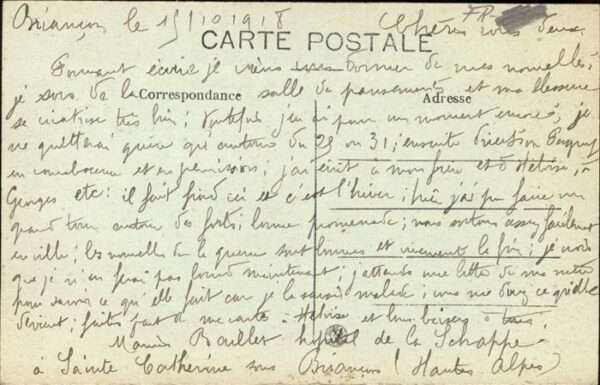 Briançon, le 15/10 1918 Chères vous deux
CARTE POSTALE
Pouvant écrire je viens donner de mes nouvelles;
je sors de la salle de pansements et ma blessure
Correspondance
Adresse
se cicatrise très bien; toutefois j'en ai pour un moment encore, je
ne quitterai guère que autour du 29 ou 31; ensuite direction
en convalescence et en permission; j'ai écrit à mon frère et à Héloïse, à
Georges etc: il fait froid ici et c'est l'hiver; hier j'ai pu faire un
grand tour autour des forts; bonne promenade; nous sortons assez facilement
en ville; les nouvelles de la guerre sont bonnes et la fin; je crois
que je n'en ferai pas lourd maintenant; j'attends une lettre de ma mère
pour savoir ce qu'elle fait car je la savais malade; vous me direz ce qu'elle
devient; faites part de ma carte à Héloïse et bons baisers à tous.
Baillet hôpital de la Schappe
à Sainte Catherine sous Briançon (Hautes Alpes)